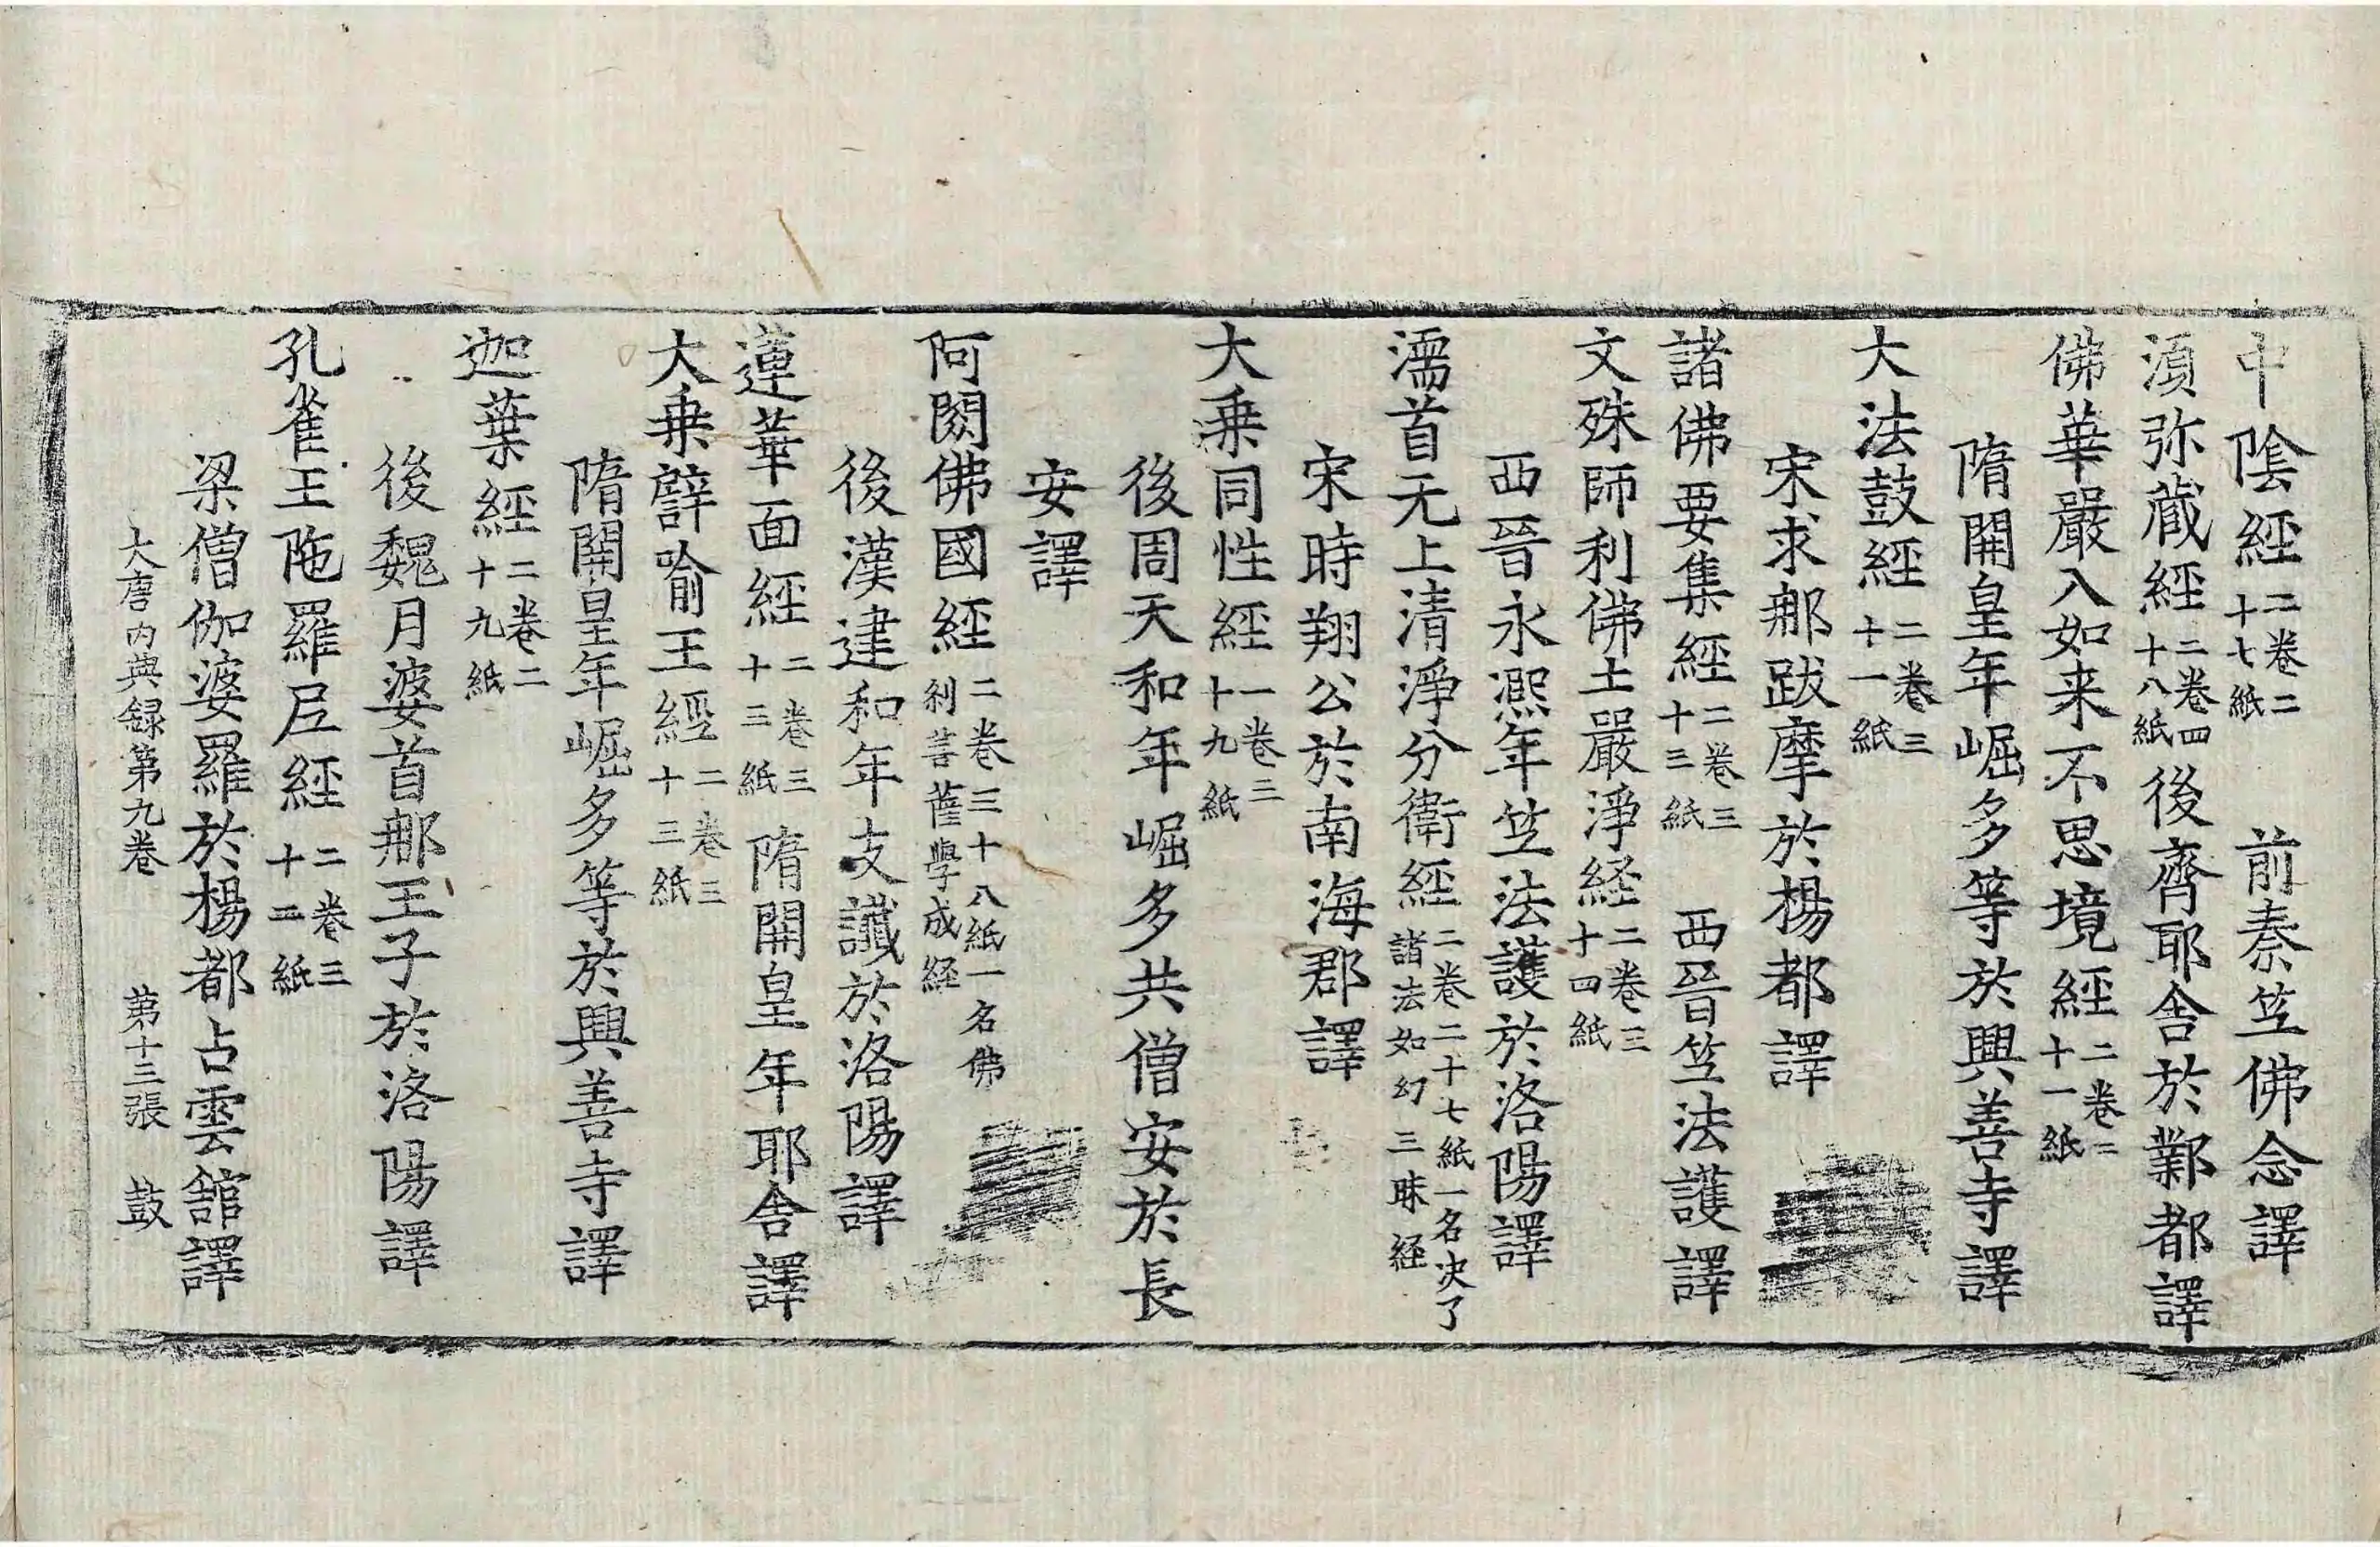 中陰經二卷二十七紙 前秦笁佛念譯
湏弥蔵經二卷四十八紙後齊耶舎於鄴都譯
佛華嚴入如来不思境經二卷二十一紙
隋開皇年崛多等於興善寺譯
大法鼓經二卷三十一紙
宋求那跋摩於楊都譯
諸佛要集經二卷三十三紙 西晉笁法護譯
文殊師利佛土嚴淨経二卷三十四紙
西晉永熈年笁法護於洛陽譯
濡首无上清淨分衛經二卷二十七紙一名决了諸法如幻三昧経
宋時翔公於南海郡譯
大乗同性經一卷三十九紙
後周天和年崛多共僧安於長
安譯
阿閦佛國經二卷三十八紙一名佛刹菩薩學成経
後漢建和年支讖於洛陽譯
蓮華面經二卷三十三紙 隋開皇年耶舎譯
大乗譬喻王經二卷三十三紙
隋開皇年崛多等於興善寺譯
迦葉經二卷二十九紙
後魏月婆首那王子於洛陽譯
孔雀王陁羅尼經二卷三十二紙
梁僧伽婆羅於楊都占雲舘譯
大唐内典録第九卷 第十三張 鼓